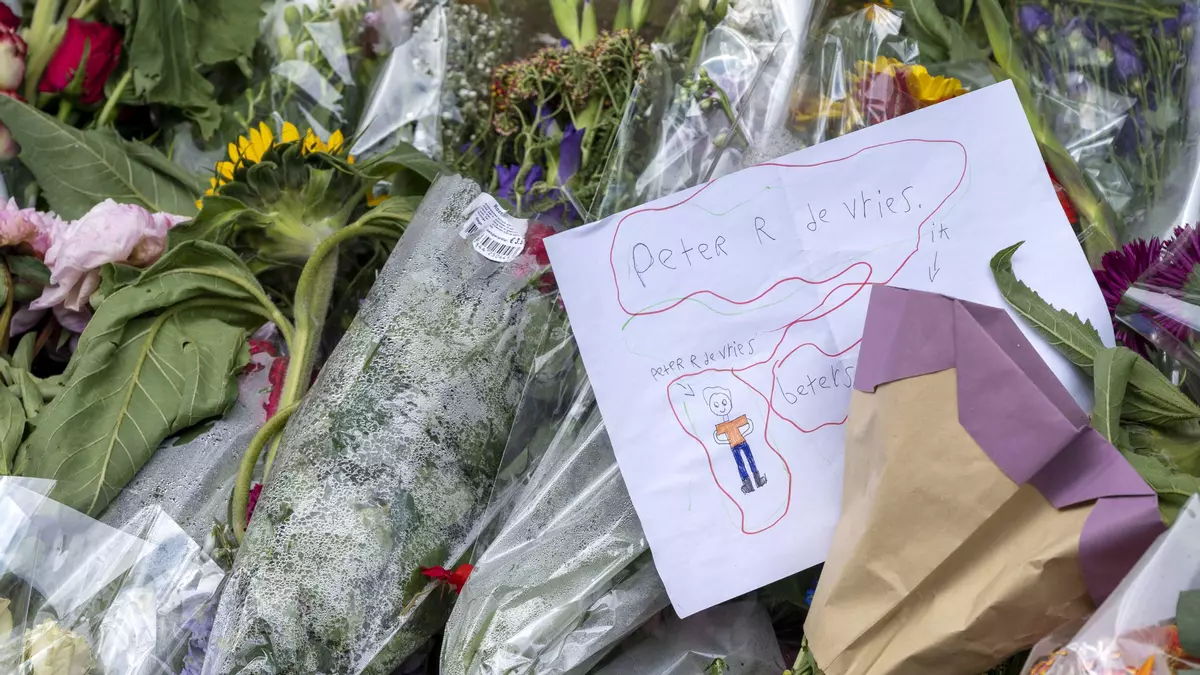 Peter R de vries.
ik
Peter R de vries
beters